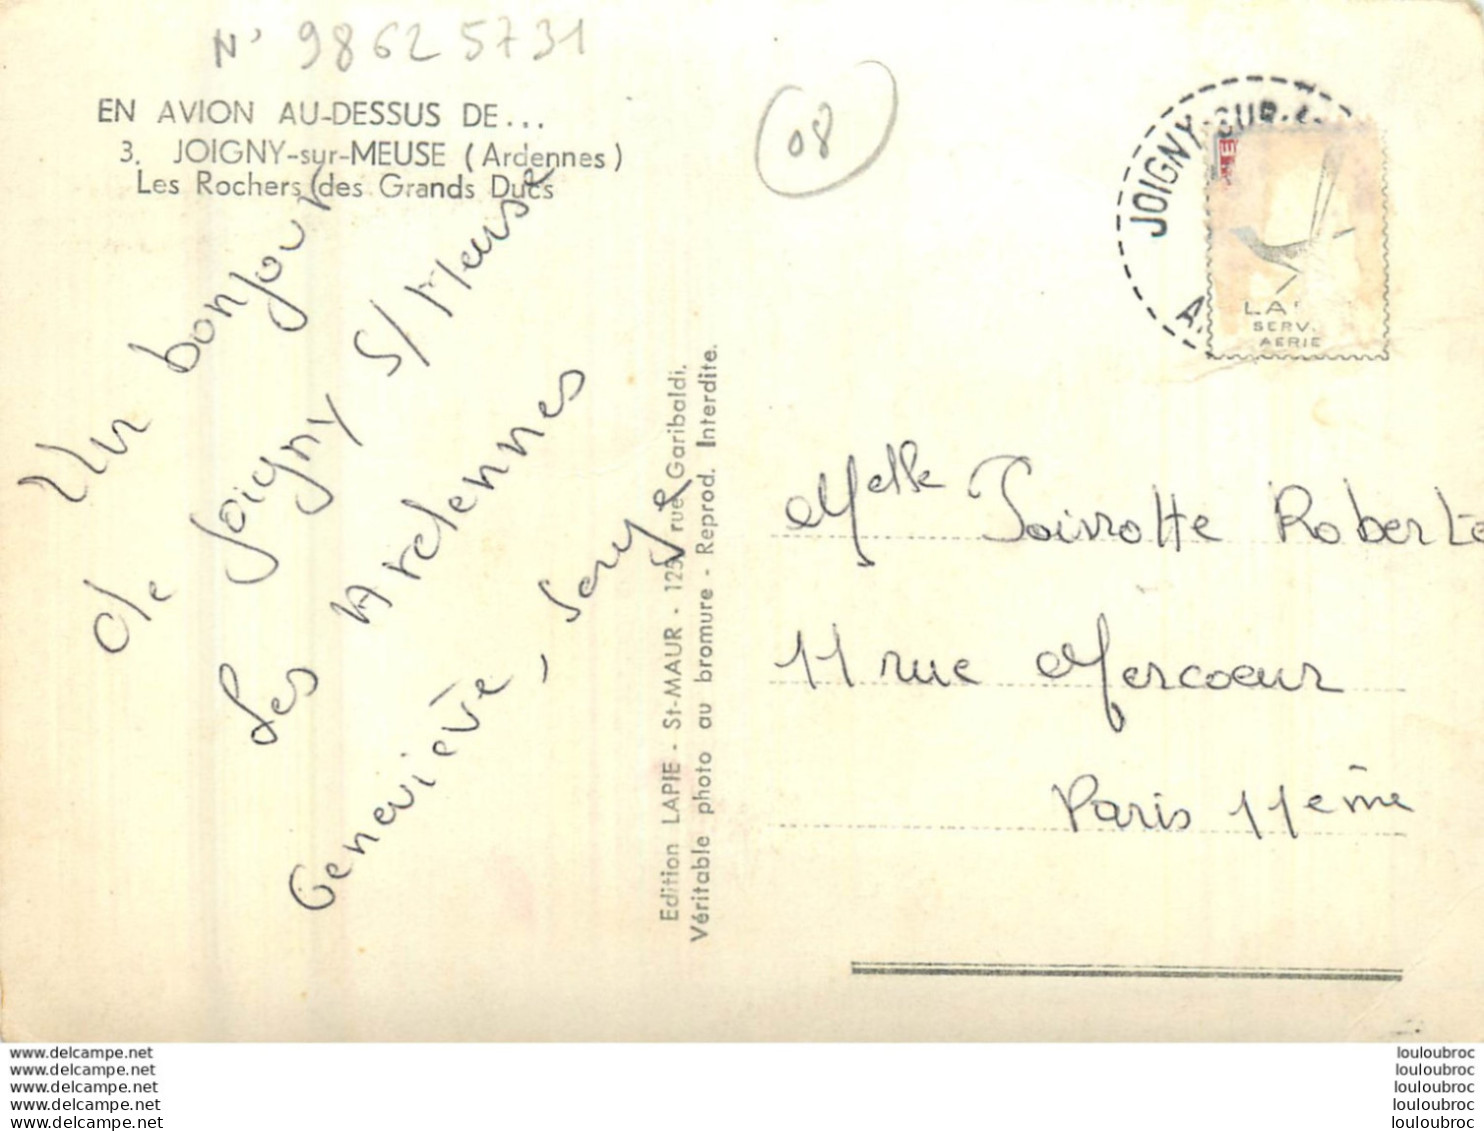 N° 98625731
EN AVION AU-DESSUS DE...
3. JOIGNY-sur-MEUSE (Ardennes)
Les Rochers des Grands Ducs
08
JOIGNY-SUR-
LA
SERV.
AERIE
Un bonjour
de Joigny s/ Meuse
Les Ardennes
Geneviève,
Edition LAPIE - St-MAUR - 125, rue Garibaldi.
Véritable photo au bromure - Reprod. Interdite.
Melle Poirrotte Roberte
11 rue Mercoeur
Paris 11ème
www.delcampe.net
www.delcampe.net
www.delcampe.net
www.delcampe.net
www.delcampe.net
louloubroc
louloubroc
louloubroc
louloubroc
louloubroc